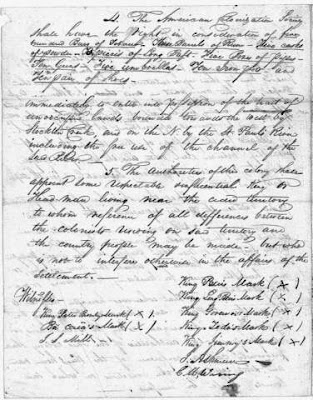 4. The American Colonization Society
shall have the right in consideration of five
hundred Bars of Tobacco, three Barrels of Rum - five casks
of powder - five umbrellas - Ten Iron Posts and
Ten pair of Shoes
immediately to enter into possession of the tract of
unoccupied lands bounded towards the west by
Stockton creek, and on the N by the St Pauls River
including the free use of the channel of the
5. The Authorities of the colony shall
appoint some respectable influential King or
Head man living near the ceded territory
to whom reference of all differences between
the colonists residing on said territory and
the country people may be made, but who
is not to interfere otherwise in the affairs of the
Settlement.
King Peters Mark ( X )
Witnesses King Long Peters Mark ( X )
Mark ( X ) King Governors Mark ( X )
Mark ( X ) King Todas Mark ( X )
King Jimmys Mark ( X )
J. Ashmun
C M Waring